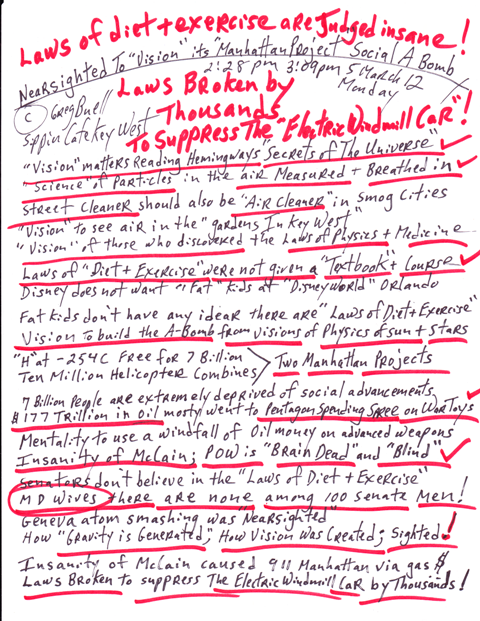 Laws of diet + exercise are Judged insane!
Nearsighted To "Vision" its "Manhattan Project" Social A Bomb
2:28 pm 3:09pm 5 March 12
Monday
© Greg Buell
Sippin Cafe Key West
Laws Broken by
Thousands
To Suppress The "Electric Windmill Car"!
"Vision" matters Reading Hemingways "Secrets of The Universe"
"Science" of Particles in the air Measured + Breathed in
Street Cleaner should also be "Air Cleaner" in Smog Cities
"Vision" to see air in the "gardens In Key West"
"Vision" of those who discovered the Laws of Physics + Medicine
Laws of "Diet + Exercise" were not given a "Textbook" + Course
Disney does not want "Fat" kids at "Disney World" Orlando
Fat kids don't have any idear there are "Laws of Diet + Exercise"
Vision To build the A-Bomb from visions of Physics of sun + stars
"H" at -254C Free for 7 Billion
Ten Million Helicopter Combines
Two Manhattan Projects
7 Billion People are extremely deprived of social advancements
$177 Trillion in Oil mostly went to Pentagon Spending Spree on War Toys
Mentality to use a windfall of Oil money on advanced weapons
Insanity of McCain; POW is "Brain Dead" and "Blind"
Senators don't believe in the "Laws of Diet + Exercise"
MD Wives there are none among 100 Senate Men!
Geneva atom smashing was "Nearsighted"
How "Gravity is Generated", How Vision was Created; Sighted!
Insanity of McCain caused 911 Manhattan via gas $
Laws Broken to suppress The Electric Windmill Car by Thousands!